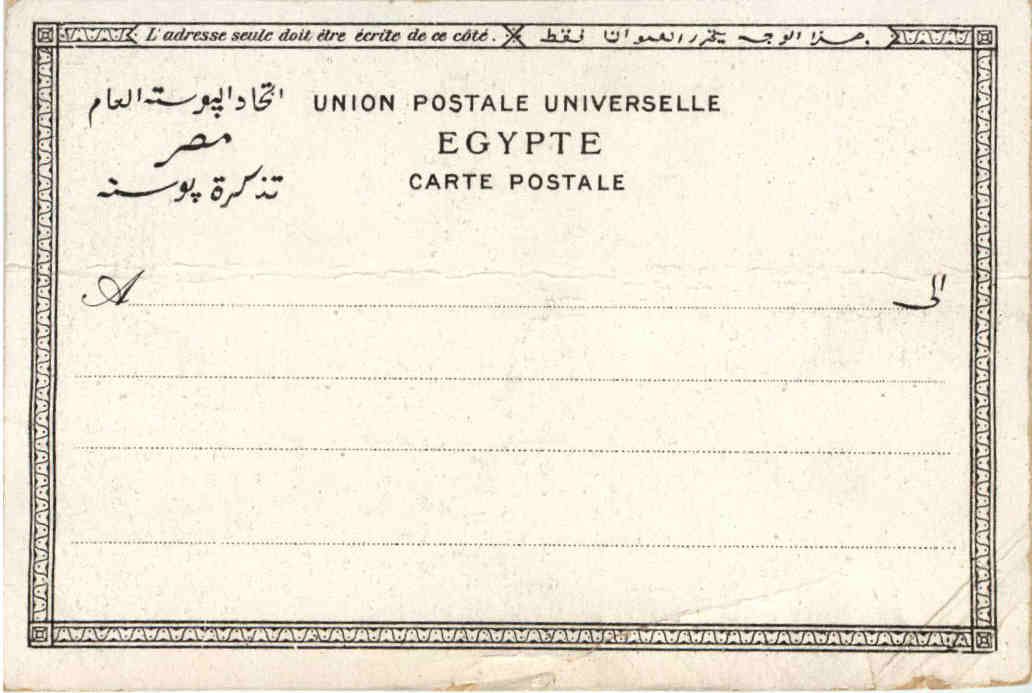 L'adresse seule doit être écrite de ce côté. هذا الوجه يحرر العنوان فقط
اتحاد البوسته العام UNION POSTALE UNIVERSELLE
مصر EGYPTE
تذكرة بوسته CARTE POSTALE
A الى